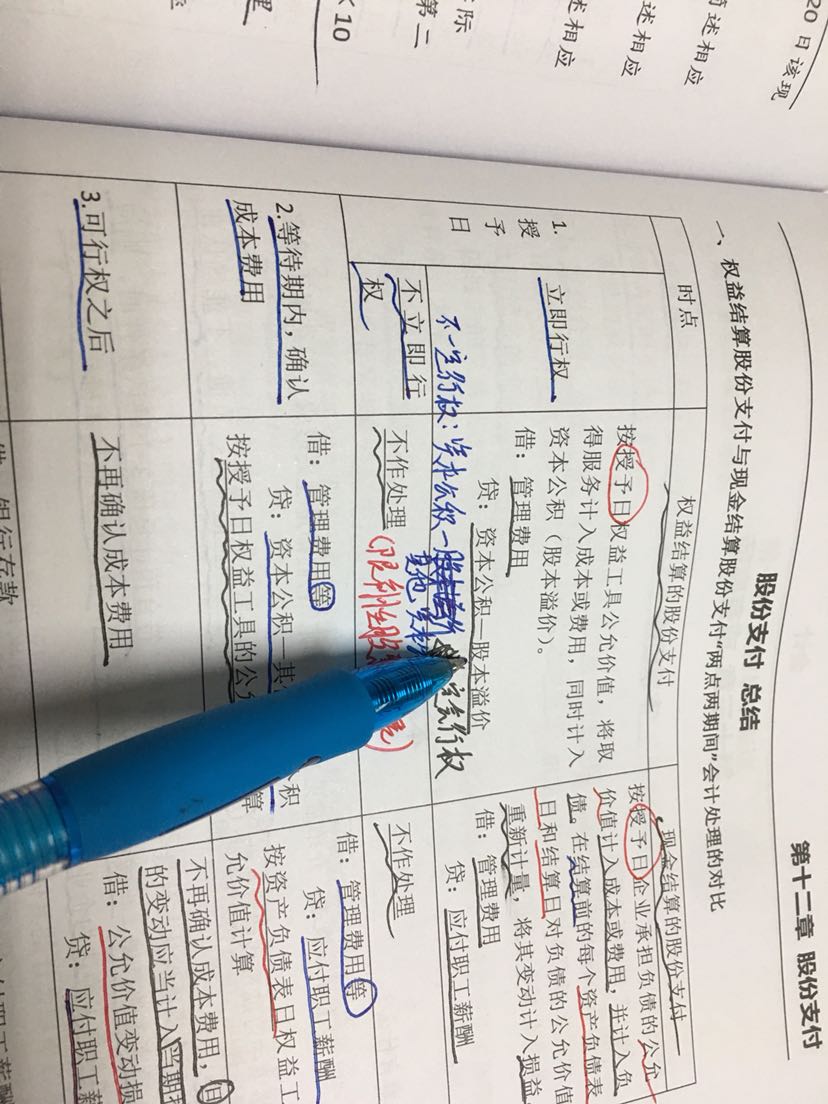 20 日该现
简述相应
述相应
述相应
际
第二
10
第十二章 股份支付
股份支付 总结
一、权益结算股份支付与现金结算股份支付“两点两期间”会计处理的对比
时点
权益结算的股份支付
现金结算的股份支付
1.
授
予
日
立即行权
按授予日权益工具公允价值，将取
得服务计入成本或费用，同时计入
资本公积（股本溢价）。
借：管理费用
贷：资本公积—股本溢价
按授予日企业承担负债的公允
价值计入成本或费用，并计入负
债。在结算前的每个资产负债表
日和结算日对负债的公允价值
重新计量，将其变动计入损益
借：管理费用
贷：应付职工薪酬
不一定行权：资本公积一
其他资本
行权
不立即行
权
不作处理
(限制性股
不作处理
2.等待期内，确认
成本费用
借：管理费用等
贷：资本公积—其
积
按授予日权益工具的公
算
借：管理费用等
贷：应付职工薪酬
按资产负债表日权益工
允价值计算
3.可行权之后
不再确认成本费用
不再确认成本费用，但
的变动应当计入当期
借：公允价值变动损
贷：应付职工薪
借：银行存款
应付职工薪酬